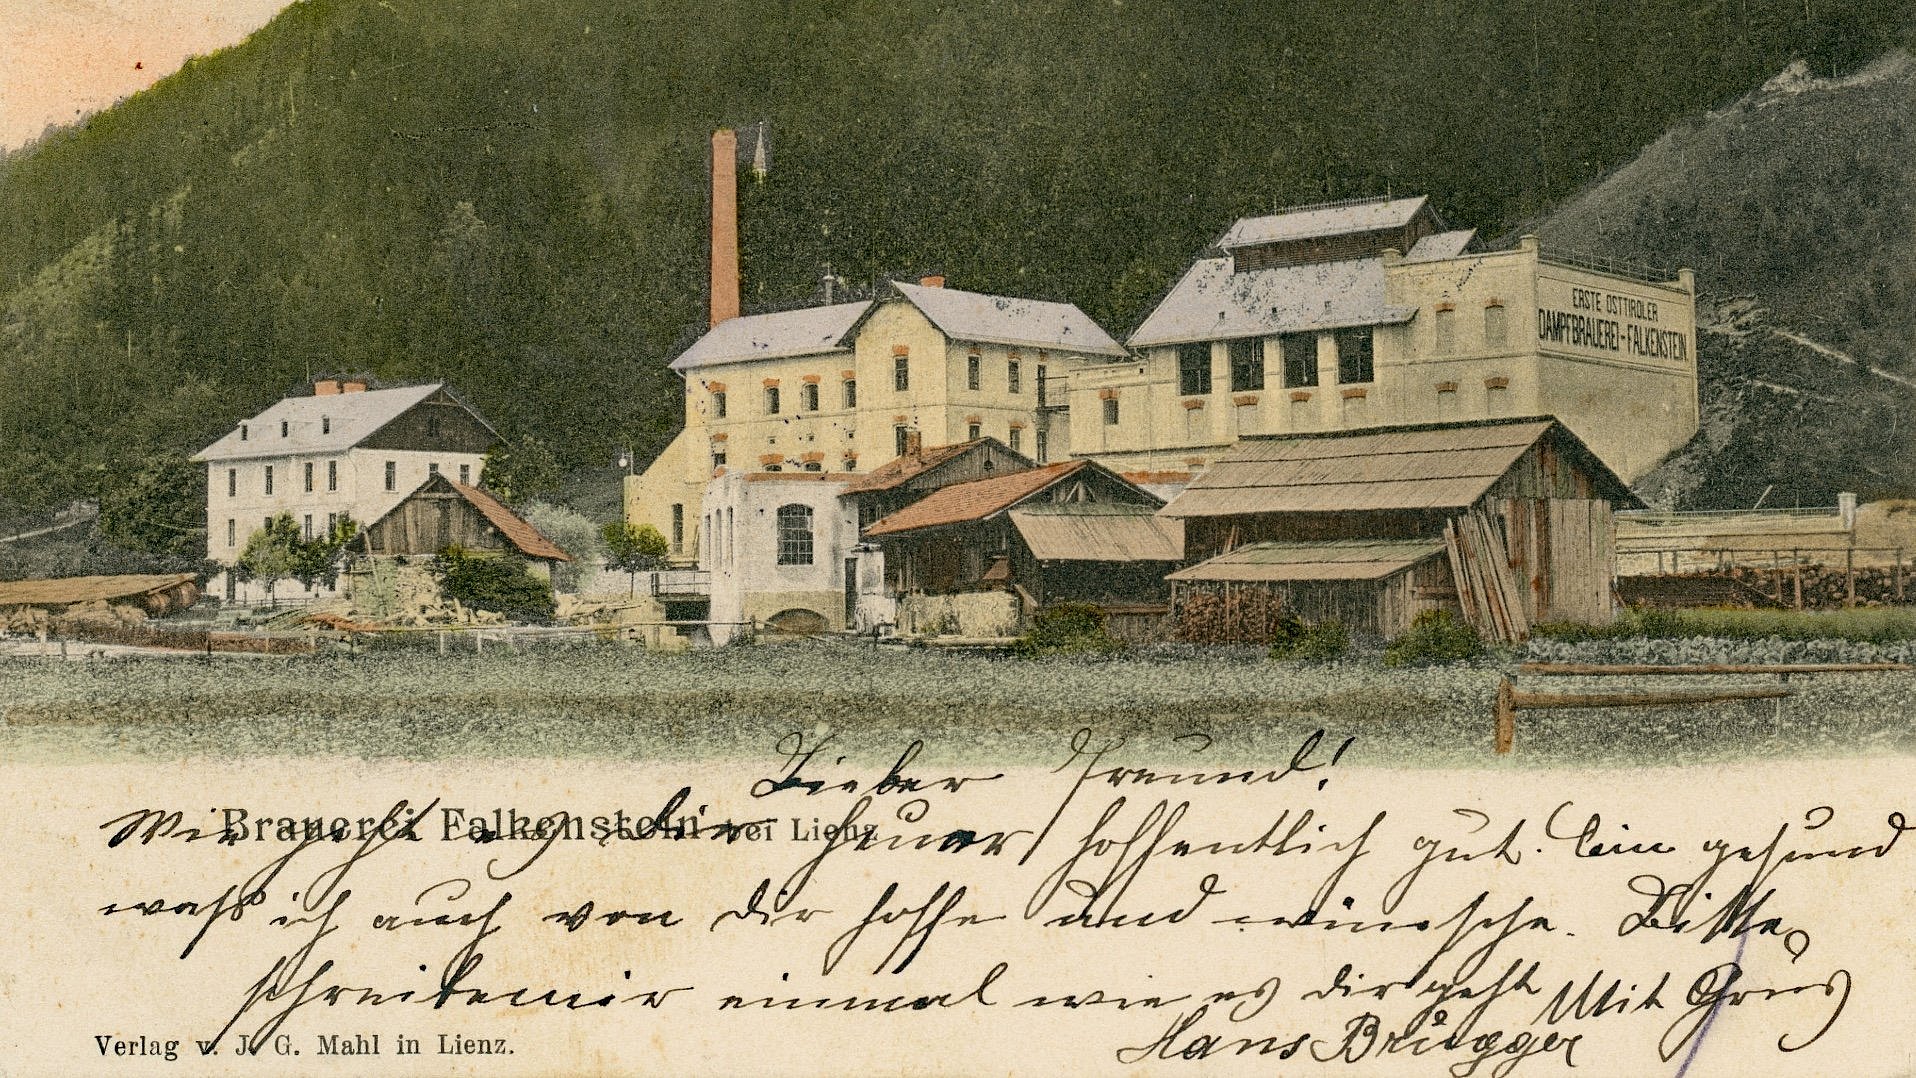 ERSTE OSTTIROLER
DAMPFBRAUEREI-FALKENSTEIN
Lieber Freund!
Brauerei Falkenstein bei Lienz
Mir geht es hier heuer hoffentlich gut. bin gesund
waß ich auch von dir hoffe und wünsche. Bitte
schreibe mir einmal wie es dir geht Mit Grus
Hans Brugger
Verlag v. J. G. Mahl in Lienz.